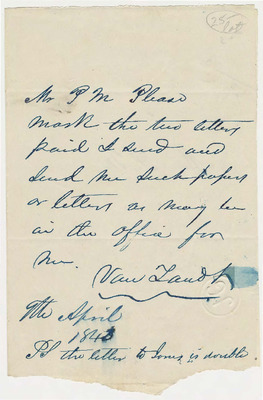 Mr P M Please
mark the two letters
paid I send and
send me such papers
or letters as may be
in the office for
me.
Van Zandt
7th April
1843
PS the letter to Jones is double.